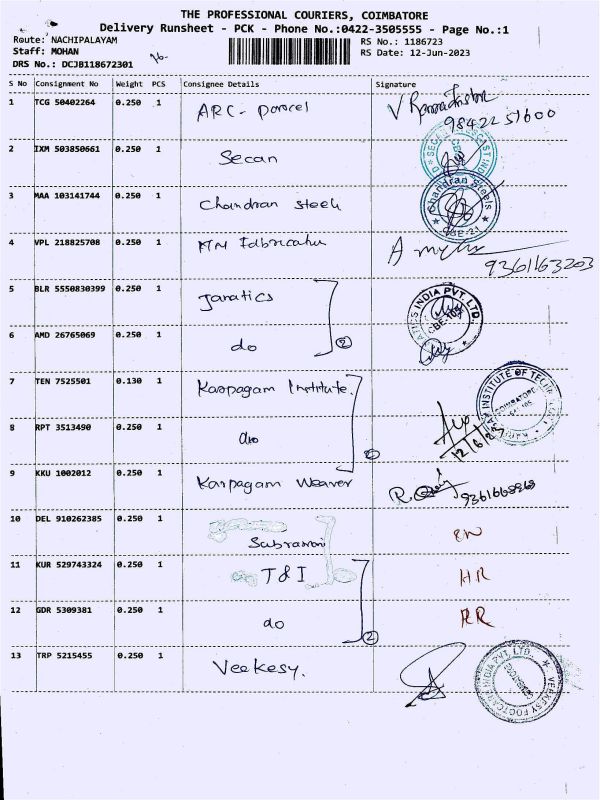 THE PROFESSIONAL COURIERS, COIMBATORE
Delivery Runsheet - PCK - Phone No.:0422-3505555 - Page No.:1
Route: NACHIPALAYAM
RS No.: 1186723
Staff: MOHAN
RS Date: 12-Jun-2023
DRS No.: DCJB118672301
S No Consignment No Weight PCS Consignee Details Signature
1 TCG 50402264 0.250 1 ARC - parcel
9842251600
2 IXM 503850661 0.250 1 Secan
3 MAA 103141744 0.250 1 Chandran steels
Chandran Steels
CBE-21
4 VPL 218825708 0.250 1
9361163203
5 BLR 5550830399 0.250 1 Janatics
INDIA PVT. LTD.
6 AMD 26765069 0.250 1 do 2
7 TEN 7525501 0.130 1 Karpagam Institute.
INSTITUTE OF TECH
COIMBATORE
8 RPT 3513490 0.250 1 do
12/6/23
9 KKU 1002012 0.250 1 Karpagam Weaver
10 DEL 910262385 0.250 1
11 KUR 529743324 0.250 1 T & I HR
12 GDR 5309381 0.250 1 do 2 RR
13 TRP 5215455 0.250 1 Veekesy.
VEEKESY FOOTCARE INDIA PVT. LTD.